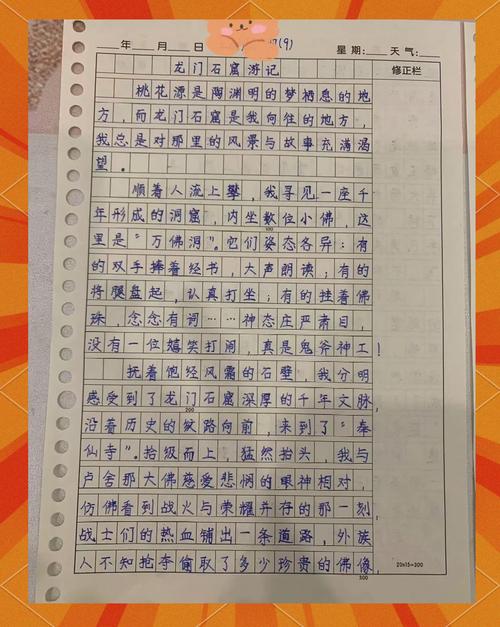 年 月 日 (9) 星期: 天气:
龙门石窟游记 修正栏
桃花源是陶渊明的梦栖息的地
方,而龙门石窟是我向往的地方,
我总是对那里的风景与故事充满渴
望。
顺着人流上攀,我寻见一座千
年形成的洞窟,内坐数位小佛,这
100
里是“万佛洞”。它们姿态各异:有
的双手捧着经书,大声朗读;有的
将腿盘起,认真打坐;有的挂着佛
珠,念念有词……神态庄严肃目,
没有一位嬉笑打闹,真是鬼斧神工!
抚着饱经风霜的石壁,我分明
感受到了龙门石窟深厚的千年文脉,
200
沿着历史的纹路向前,来到了“奉
仙寺”。拾级而上,猛然抬头,我与
卢舍那大佛慈爱悲悯的眼神相对,
仿佛看到战火与荣耀并存的那一刻
战士们的热血铺出一条道路,外族
人不知抢夺偷取了多少珍贵的佛像,
300
20x15=300